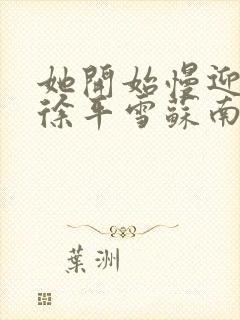 她開始慢迎
徐平雪蘇南
葉洲